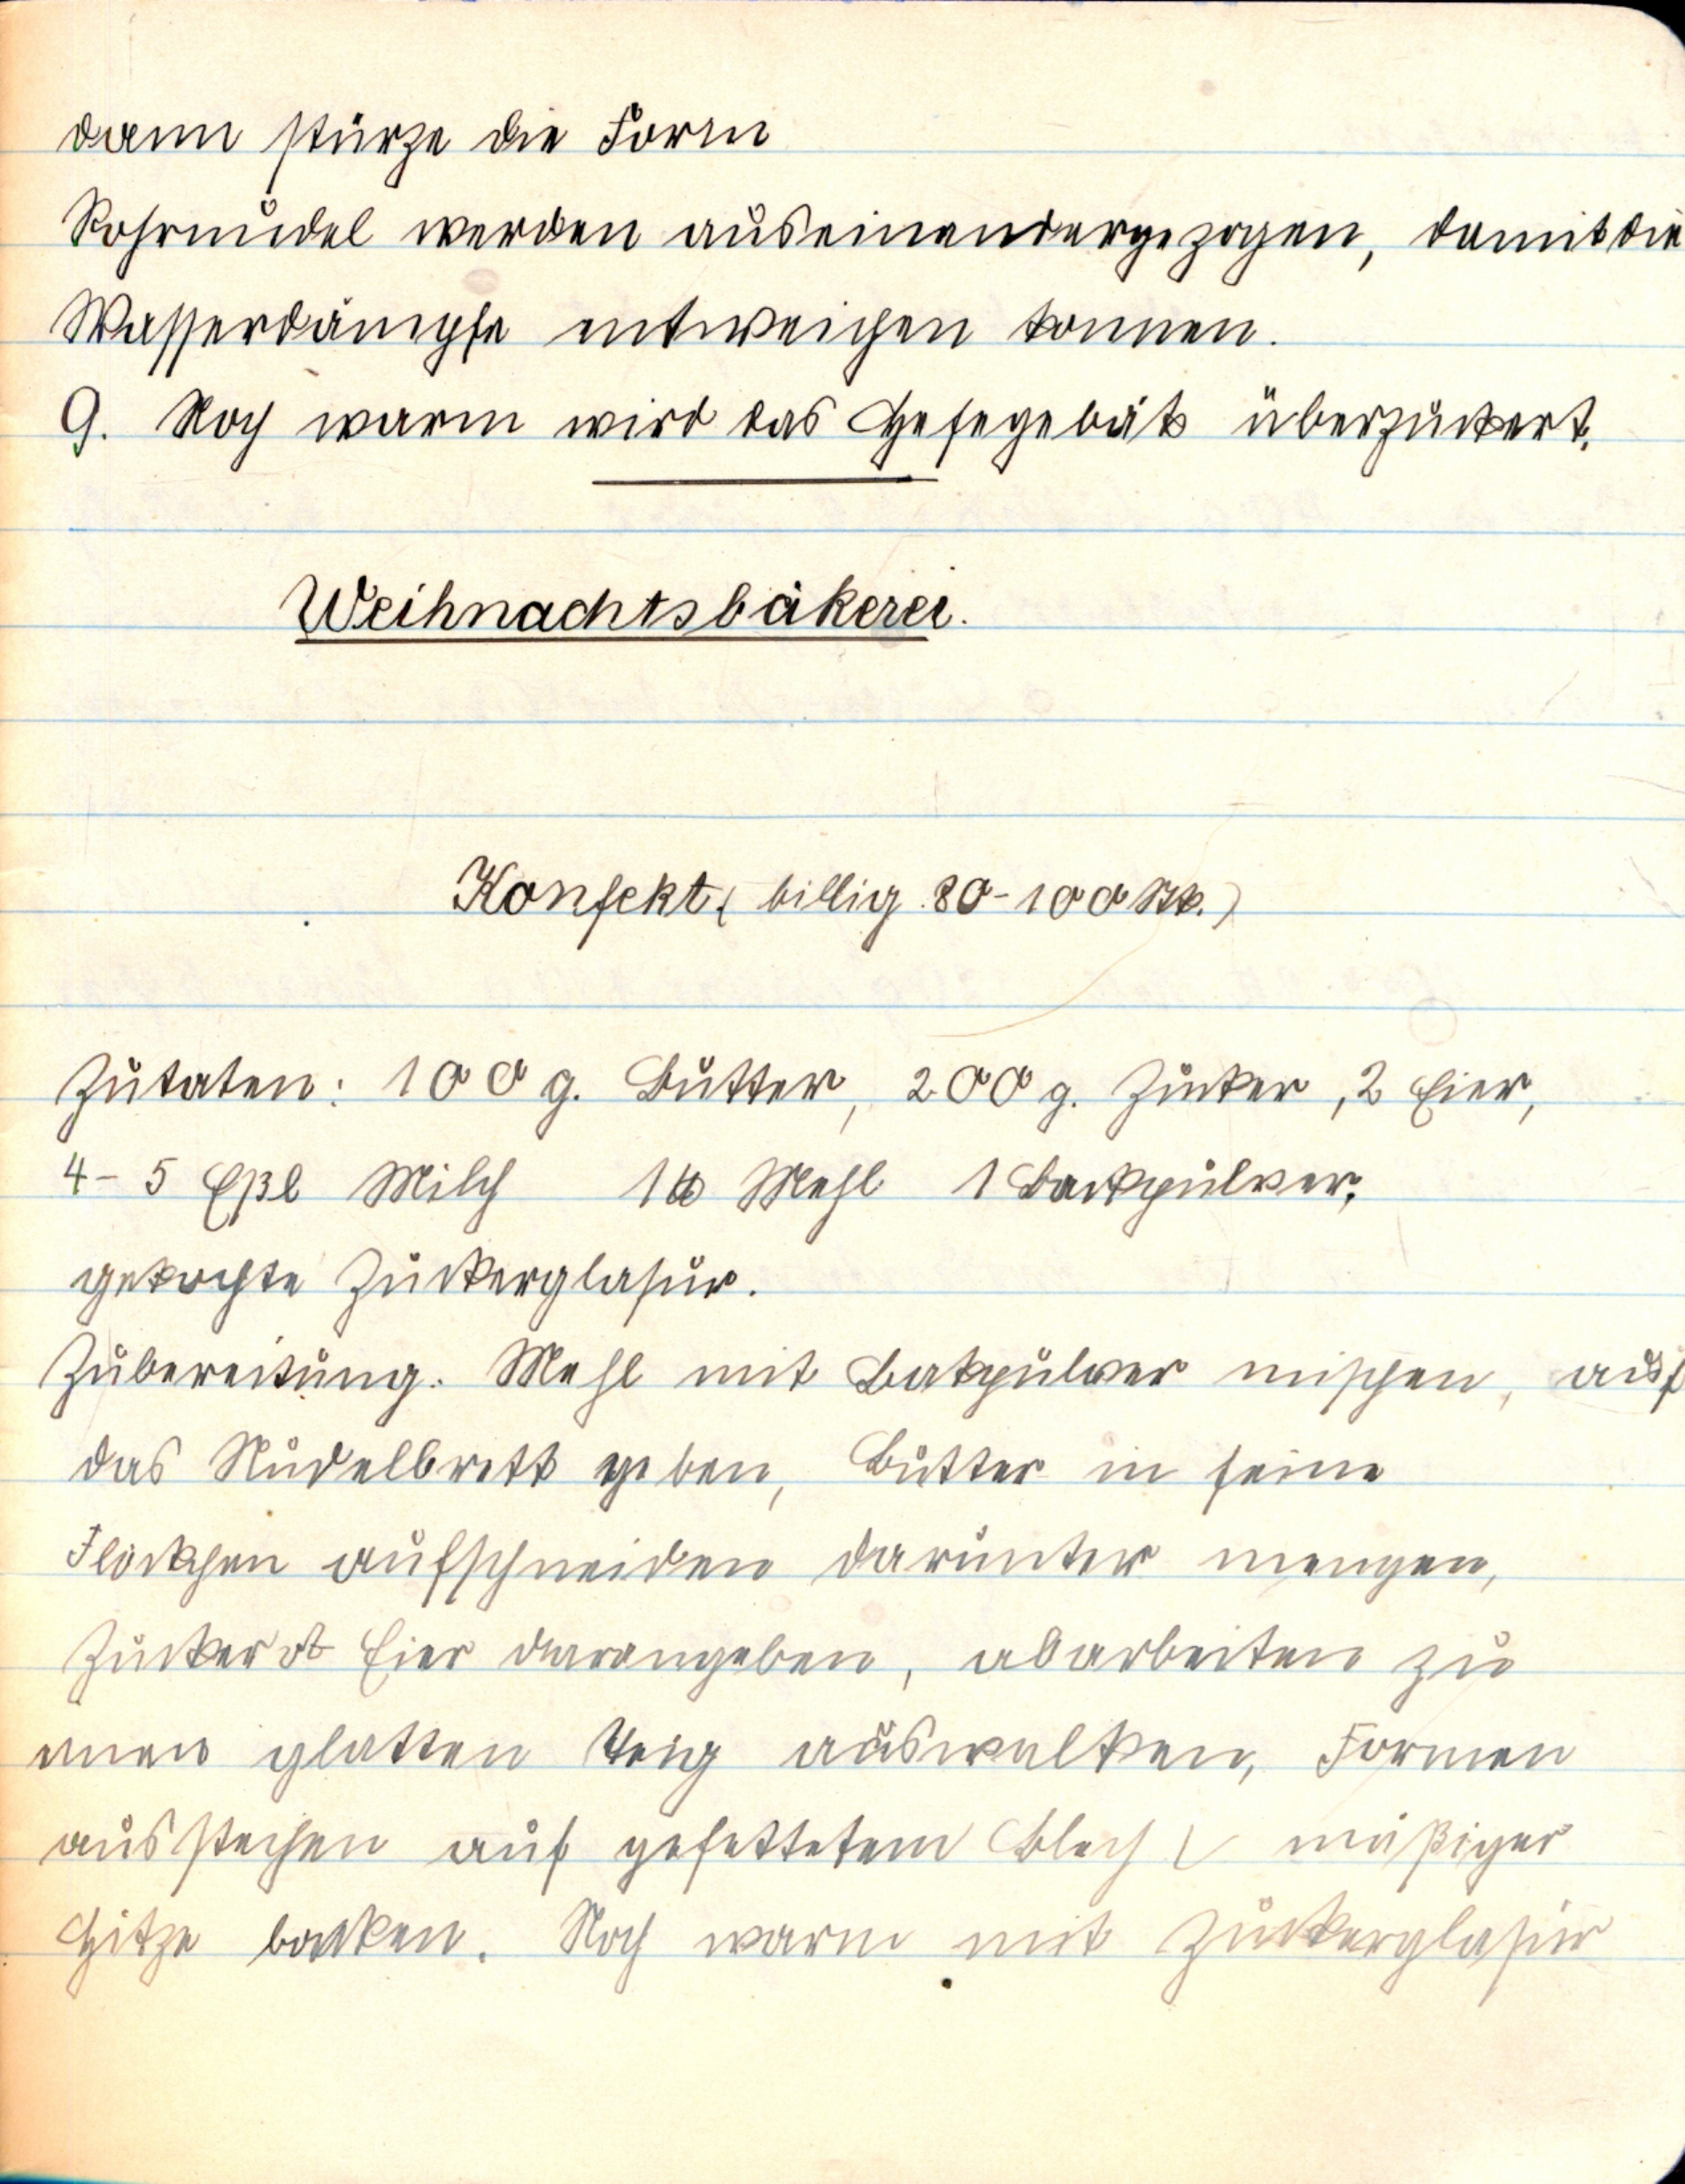 dann stürze die Form
Rohrnudel werden auseinandergezogen, damit die
Wasserdämpfe entweichen konnen.
9. Noch warm wird das Hefegebäk überzuckert.
Weihnachtsbäkerei.
Konfekt ( billig 80-100 Stk.)
Zutaten: 100 g. Butter, 200 g. Zucker, 2 Eier,
4-5 Eßl Milch 1 ℔ Mehl 1 Backpulver,
gekochte Zuckerglasur.
Zubereitung. Mehl mit Bakpulver mischen, auf
das Nudelbrett geben, Butter in feine
Flöckchen aufschneiden darunter mengen,
Zucker & Eier darangeben, abarbeiten zu
einen glatten Teig auswalken, Formen
ausstechen auf gefettetem Blech mäßiger
Hitze backen. Noch warm mit Zuckerglasur